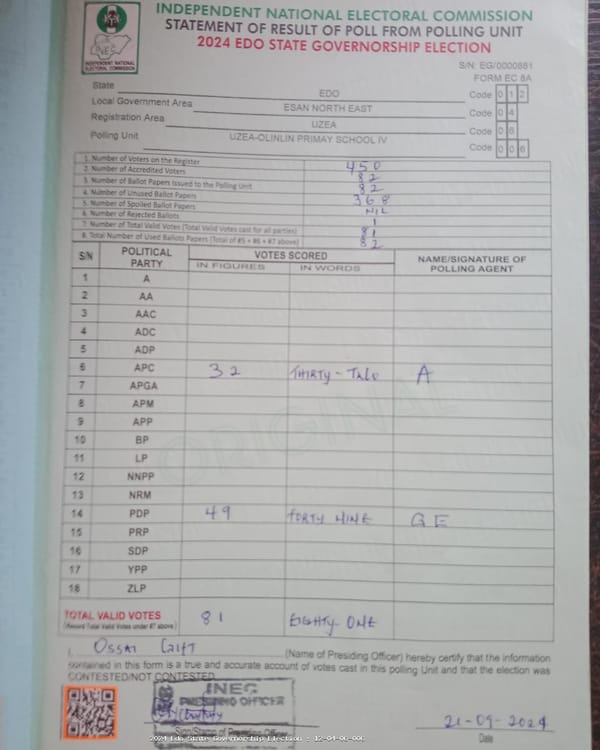 INDEPENDENT NATIONAL ELECTORAL COMMISSION
STATEMENT OF RESULT OF POLL FROM POLLING UNIT
2024 EDO STATE GOVERNORSHIP ELECTION
INEC
INDEPENDENT NATIONAL
ELECTORAL COMMISSION
S/N: EG/0000881
FORM EC 8A
State EDO Code 0 1 2
Local Government Area ESAN NORTH EAST Code 0 4
Registration Area UZEA Code 0 6
Polling Unit UZEA-OLINLIN PRIMAY SCHOOL IV Code 0 0 6
1. Number of Voters on the Register 450
2. Number of Accredited Voters 82
3. Number of Ballot Papers Issued to the Polling Unit 82
4. Number of Unused Ballot Papers 368
5. Number of Spoiled Ballot Papers NIL
6. Number of Rejected Ballots 1
7. Number of Total Valid Votes (Total Valid Votes cast for all parties) 81
8. Total Number of Used Ballots Papers (Total of #5 + #6 + #7 above) 82
S/N POLITICAL PARTY VOTES SCORED NAME/SIGNATURE OF POLLING AGENT
IN FIGURES IN WORDS
1 A
2 AA
3 AAC
4 ADC
5 ADP
6 APC 32 THIRTY-TWO A
7 APGA
8 APM
9 APP
10 BP
11 LP
12 NNPP
13 NRM
14 PDP 49 FORTY NINE G E
15 PRP
16 SDP
17 YPP
18 ZLP
ORIGINAL
TOTAL VALID VOTES 81 EIGHTY-ONE
(Record Total Valid Votes under #7 above)
I, (Name of Presiding Officer) hereby certify that the information
contained in this form is a true and accurate account of votes cast in this polling Unit and that the election was
CONTESTED/NOT CONTESTED.
INEC
PRESIDING OFFICER
Sign/Stamp of Presiding Officer
21-09-2024
Date
2024 Edo State Governorship Election - 12-04-06-006